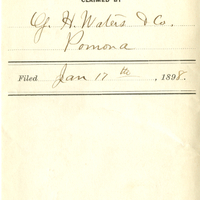 CLAIMED BY
Of H. Waters & Co.
Pomona
Filed Jan 17th, 1898.